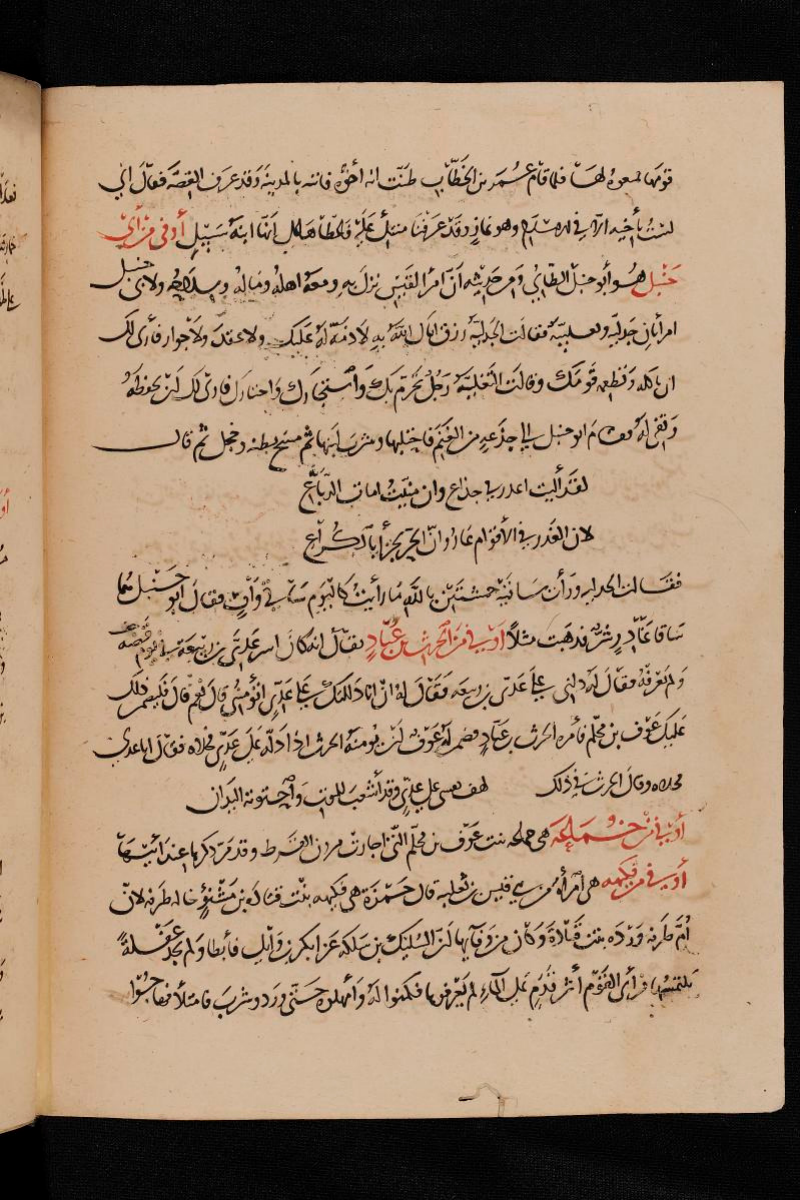 قومها فمنعوه لها فلما قام عمر بن الخطاب ظنت انه أخوه فاتته بالمدينة وقد عرف القصة فقال اني
لست بأخيه الا في الاسلام وهو غاز وقد عرفنا منتك عليه فاعطاها على انها ابنة سبيل أوفى من أبي
حنبل هو أبو حنبل الطائي ومن حديثه أن امرأ القيس نزل به ومعه اهله وماله وسلاحه ولابي حنبل
امرأتان جدلية وثعلبية فقالت الجدلية رزق اتاك الله به لا ذمة له عليك ولا عقد ولا جوار فأرى لك
ان تاكله وتطعمه قومك وقالت الثعلبية رجل تحرم بك واستجارك واختارك فارى لك ان تحفظه
وتفي له فقام ابو حنبل الى جذعة من الغنم فاحتلبها وشرب لبنها ثم مسح بطنه وحجل ثم قال
لقد آليت اغدر في جذاع وان منيت امات الرباع
لان الغدر في الأقوام عار وان الحر يجزأ بالكراع
فقالت الجدلية ورأت ساقيه حمشتين بالله ما رأيت كاليوم ساقي واف فقال أبو حنبل هما
ساقا غادر شر فذهبت مثلا أوفى من الحرث بن عباد يقال انه كان اسر عدي بن ربيعة في يوم قضة
ولم يعرفه فقال له دلني على عدي بن ربيعة فقال له ان انا دللتك على عدي اتؤمنني قال نعم قال فليضمن ذلك
عليك عوف بن محلم فأمره الحرث بن عباد فضمن له عوف ان يؤمنه الحرث اذا دله على عدي فخلاه فقال انا عدي
فخلاه وقال الحرث في ذلك لهف نفسي على عدي وقد أشعب للموت واحتوته اليدان
أوفى من خماعة هي خماعة بنت عوف بن محلم التي اجارت مروان القرظ وقد مر ذكرها عند ابيها
أوفى من فكيهة هي امرأة من بني قيس بن ثعلبة قال حمزة هي فكيهة بنت قتادة بن مشنوء خالة طرفة لان
أم طرفة وردة بنت قتادة وكان من وفائها ان السليك بن سلكة غزا بكر بن وائل فأبطأ ولم يجد غفلة
يلتمسها فرأى القوم أثر قدم على الماء لم يعرفوها فكمنوا له وأمهلوه حتى ورد وشرب فامتلأ فهاجوا